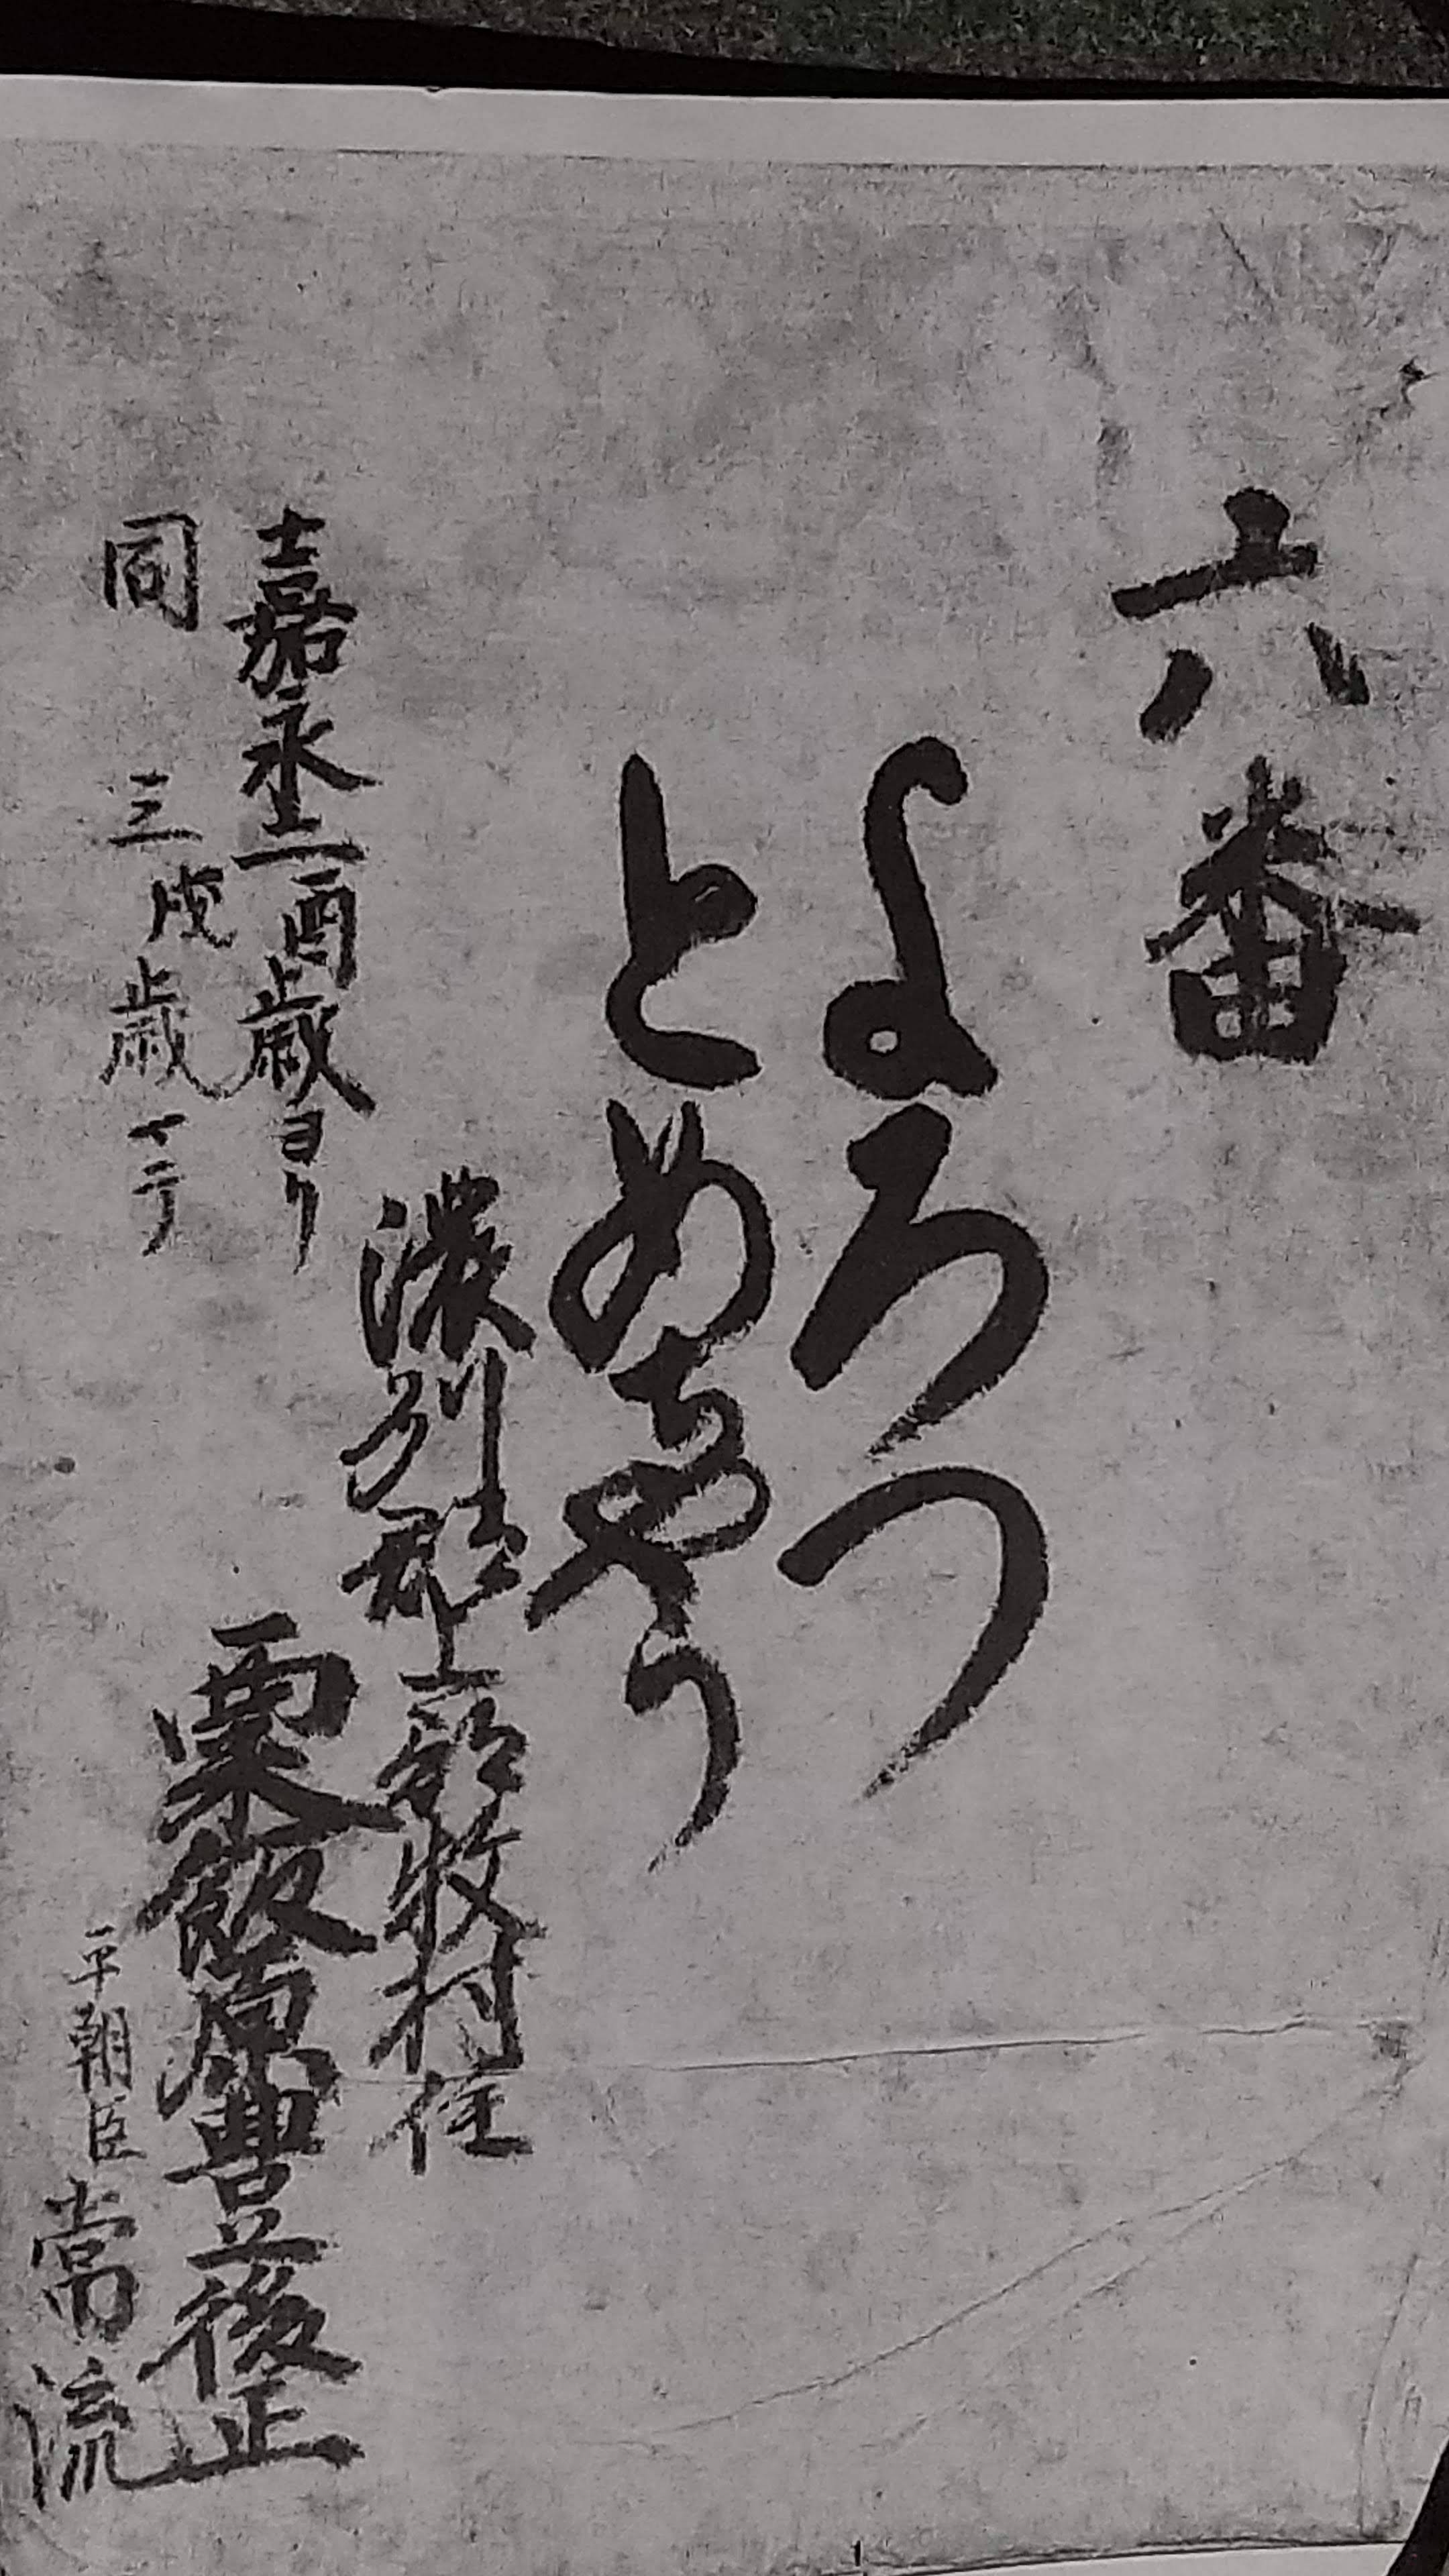 六番
よろつ
とめちやう
嘉永二酉歳ヨリ
同 三戌歳マテ
濃州郡上郡牧村住
粟飯原豊後正
平朝臣常流